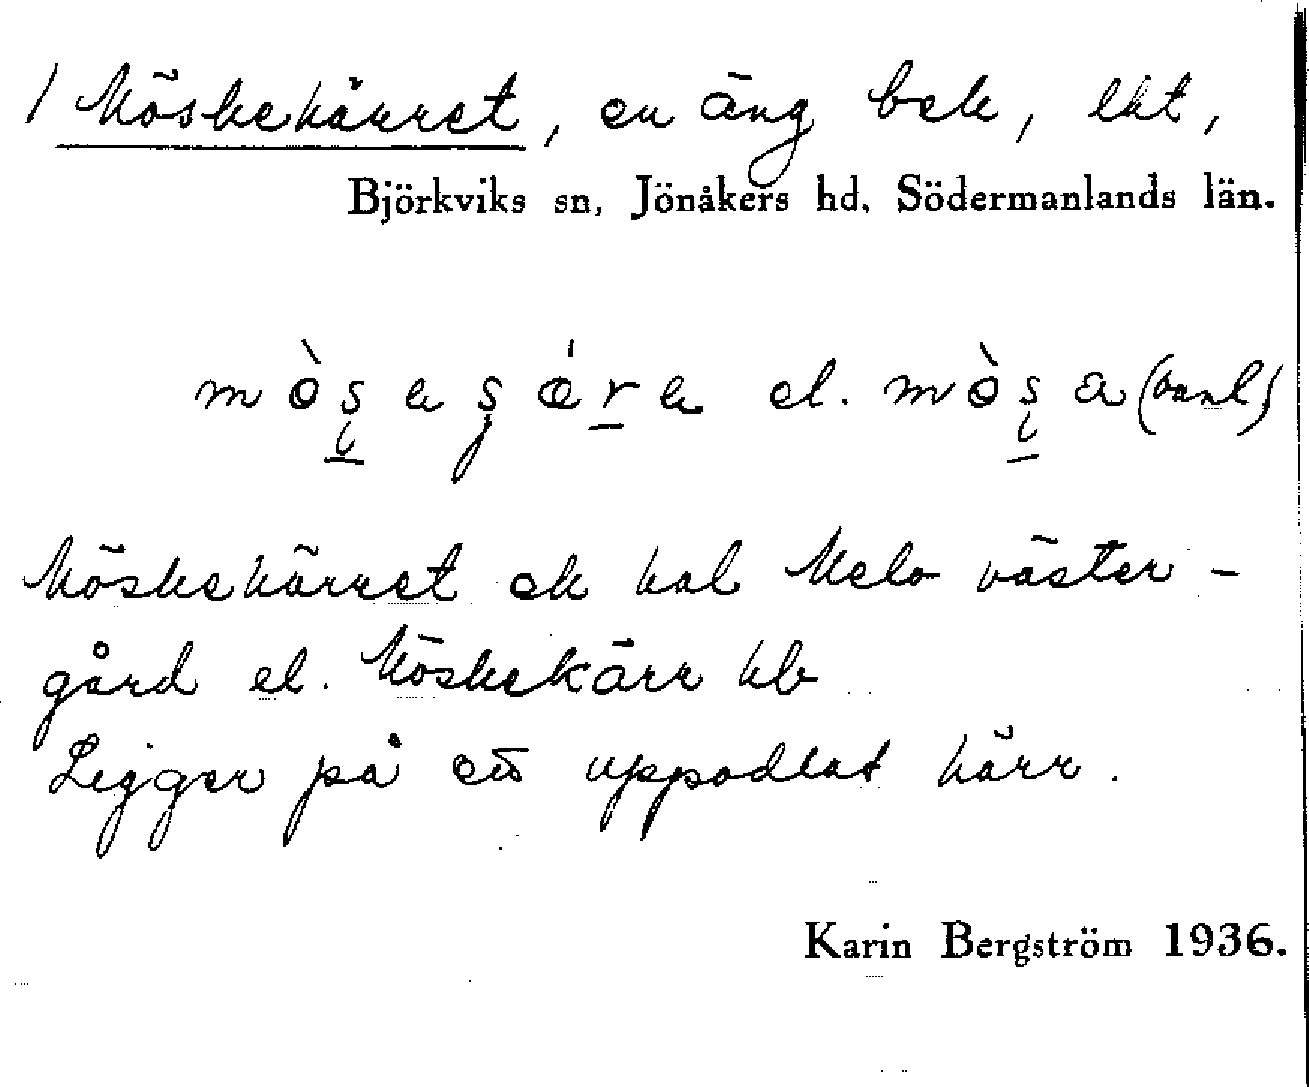 1 Möskekärret, en äng bek, ekt,
Björkviks sn, Jönåkers hd, Södermanlands län.
el. (vanl)
Möskekärret ek kal Melo väster-
gård el. Möskekärr kb
Ligger på ett uppodlat kärr.
Karin Bergström 1936.